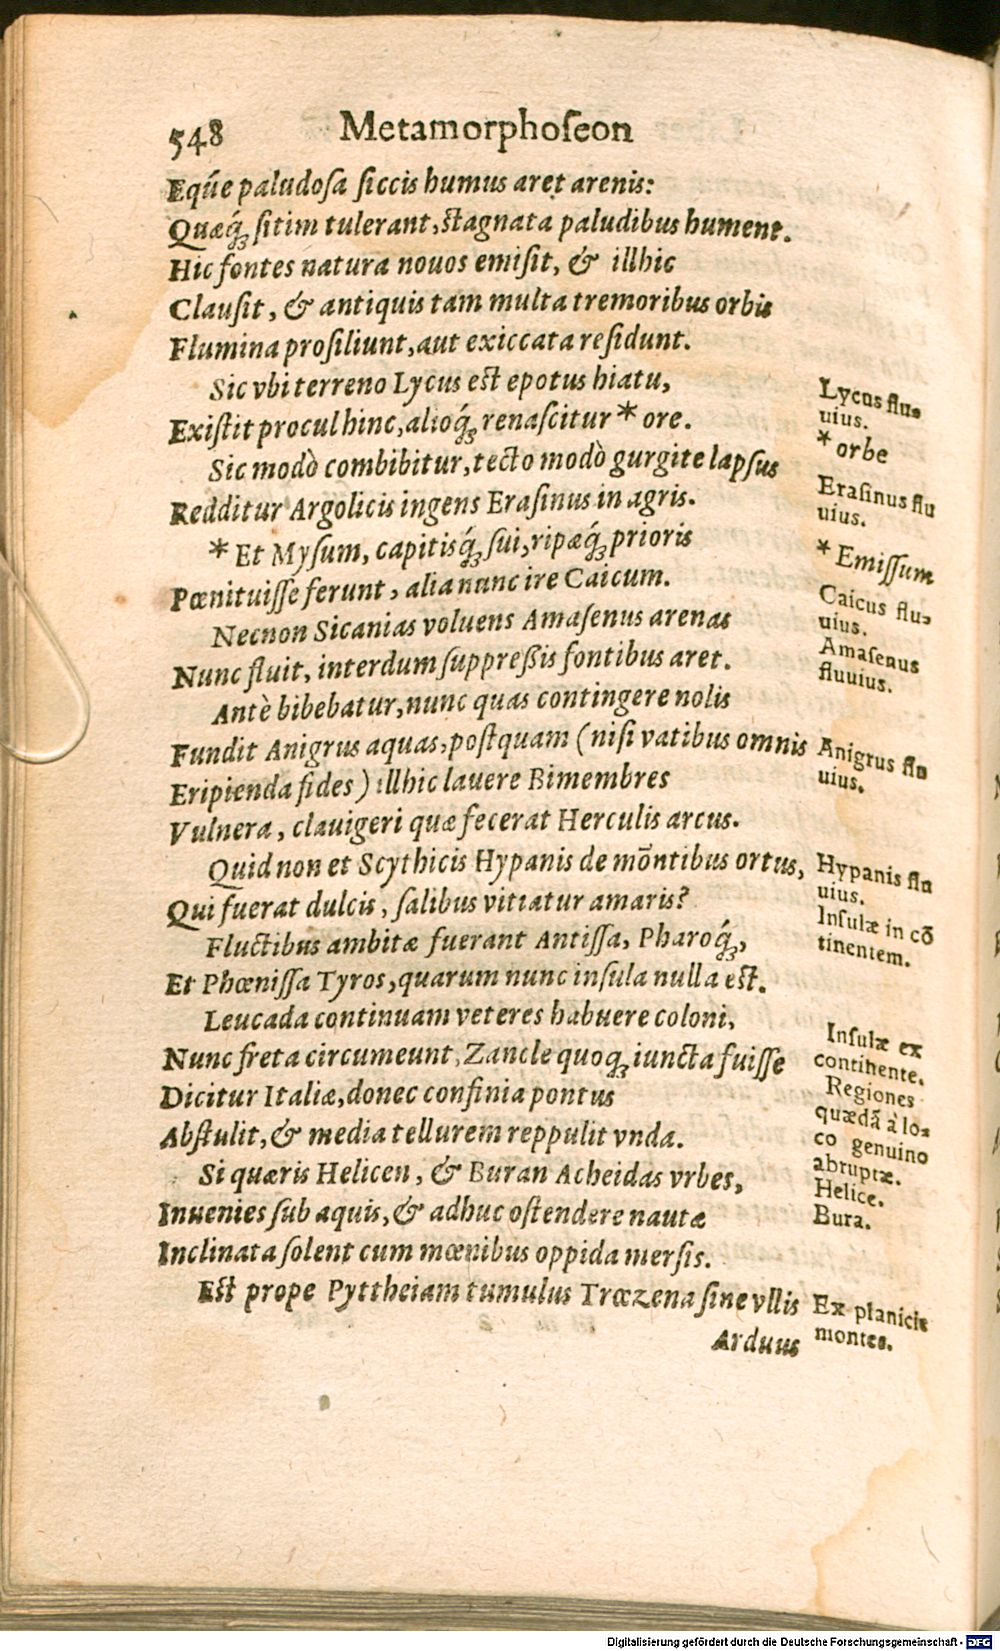 548 Metamorphoſeon
Eq́ue paludoſa ſiccis humus aret arenis:
Quæq́; ſitim tulerant, ſtagnata paludibus hument.
Hic fontes natura nouos emiſit, & illhic
Clauſit, & antiquis tam multa tremoribus orbis
Flumina proſiliunt, aut exiccata reſidunt.
Sic vbi terreno Lycus eſt epotus hiatu,
Exiſtit procul hinc, alioq́; renaſcitur * ore.
Sic modò combibitur, tecto modò gurgite lapſus
Redditur Argolicis ingens Eraſinus in agris.
* Et Myſum, capitisq́; ſui, ripæq́; prioris
Pœnituiſſe ferunt, alia nunc ire Caicum.
Necnon Sicanias voluens Amaſenus arenas
Nunc fluit, interdum ſuppreßis fontibus aret.
Antè bibebatur, nunc quas contingere nolis
Fundit Anigrus aquas, poſtquam (niſi vatibus omnis
Eripienda fides) illhic lauere Bimembres
Vulnera, clauigeri quæ fecerat Herculis arcus.
Quid non et Scythicis Hypanis de mōntibus ortus,
Qui fuerat dulcis, ſalibus vitiatur amaris?
Fluctibus ambitæ fuerant Antiſſa, Pharoq́;,
Et Phœniſſa Tyros, quarum nunc inſula nulla eſt.
Leucada continuam veteres habuere coloni,
Nunc freta circumeunt, Zancle quoq; iuncta fuiſſe
Dicitur Italiæ, donec confinia pontus
Abſtulit, & media tellurem reppulit vnda.
Si quæris Helicen, & Buran Acheidas vrbes,
Inuenies ſub aquis, & adhuc oſtendere nautæ
Inclinata ſolent cum mœnibus oppida merſis.
Eſt prope Pyttheiam tumulus Trœzena ſine vllis
Arduus
Lycus flu-
uius.
* orbe
Eraſinus flu
uius.
* Emiſſum
Caicus flu-
uius.
Amaſenus
fluuius.
Anigrus flu
uius.
Hypanis flu
uius.
Inſulæ in cō
tinentem.
Inſulæ ex
continente.
Regiones
quædã à lo-
co genuino
abruptæ.
Helice.
Bura.
Ex planicie
montes.
Digitalisierung gefördert durch die Deutsche Forschungsgemeinschaft - DFG